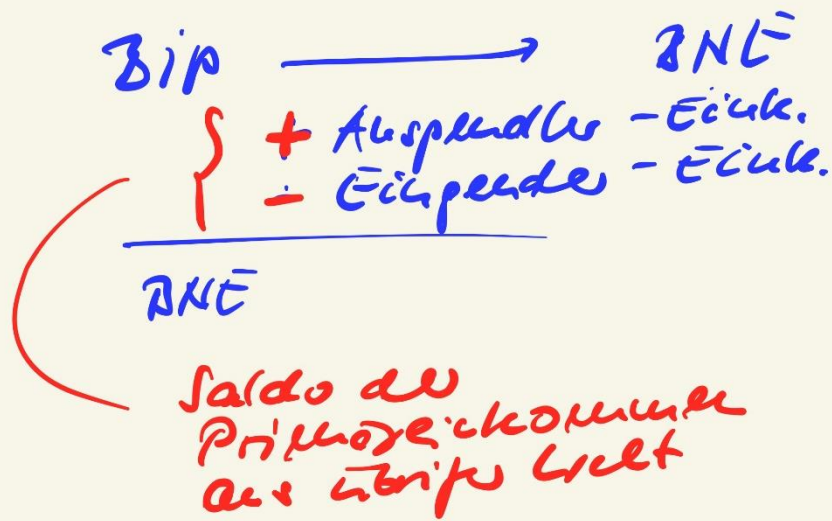 Bip → BNE
+ Auspendler - Eink.
- Einpendler - Eink.
BNE
Saldo der
Primäreinkommen
aus übriger Welt